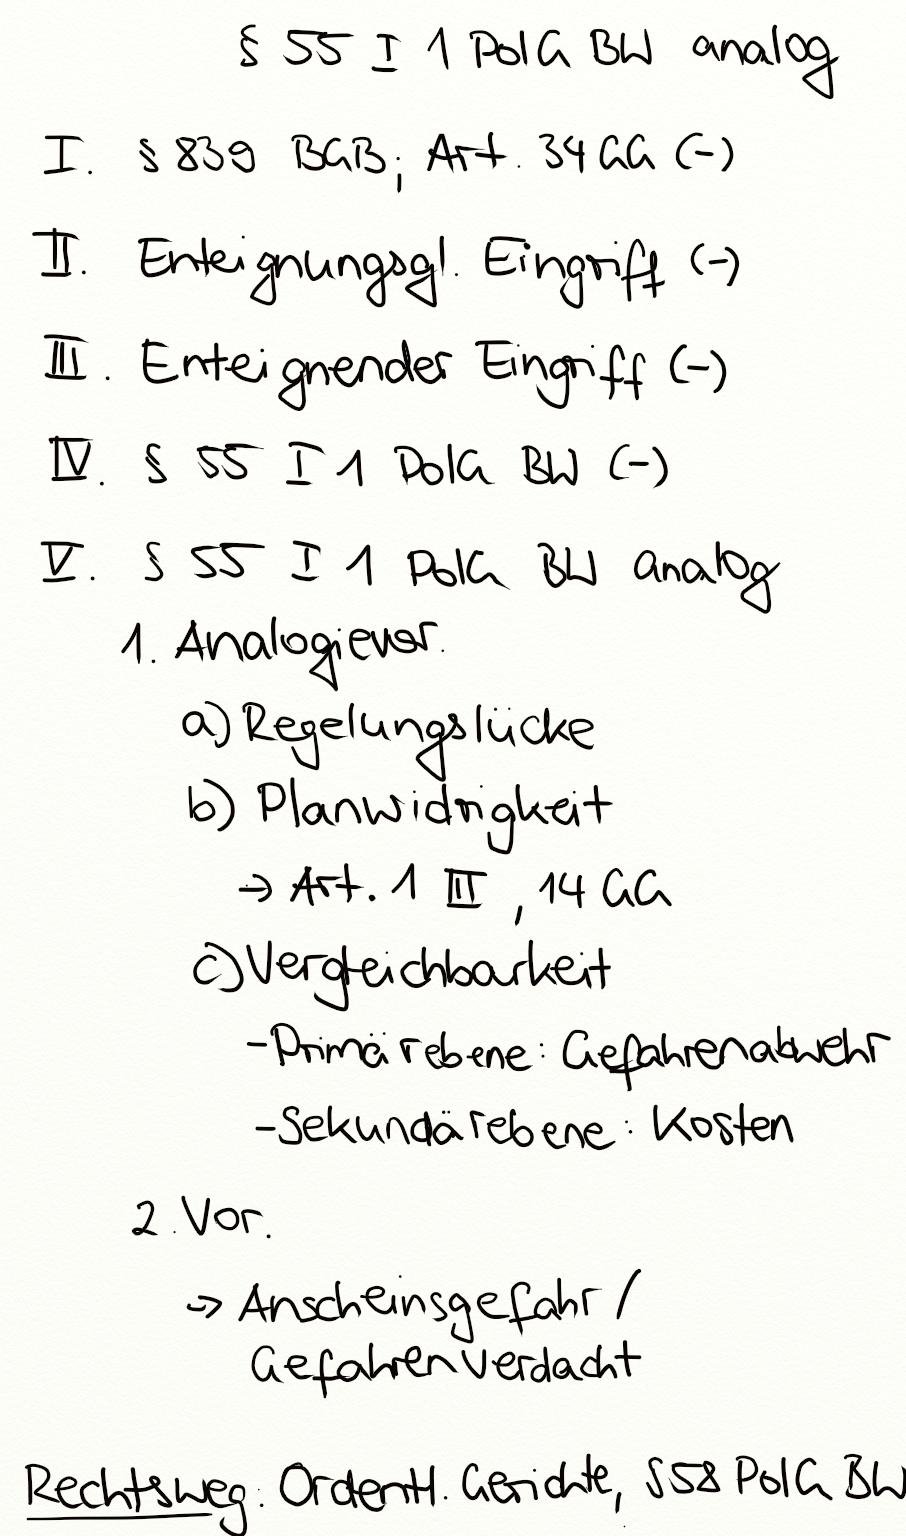 § 55 I 1 PolG BW analog
I. § 839 BGB; Art. 34 GG (-)
II. Enteignungsgl. Eingriff (-)
III. Enteignender Eingriff (-)
IV. § 55 I 1 PolG BW (-)
V. § 55 I 1 PolG BW analog
1. Analogievor.
a) Regelungslücke
b) Planwidrigkeit
→ Art. 1 III, 14 GG
c) Vergleichbarkeit
- Primärebene: Gefahrenabwehr
- Sekundärebene: Kosten
2. Vor.
→ Anscheinsgefahr /
Gefahrenverdacht
Rechtsweg: Ordentl. Gerichte, §58 PolG BW